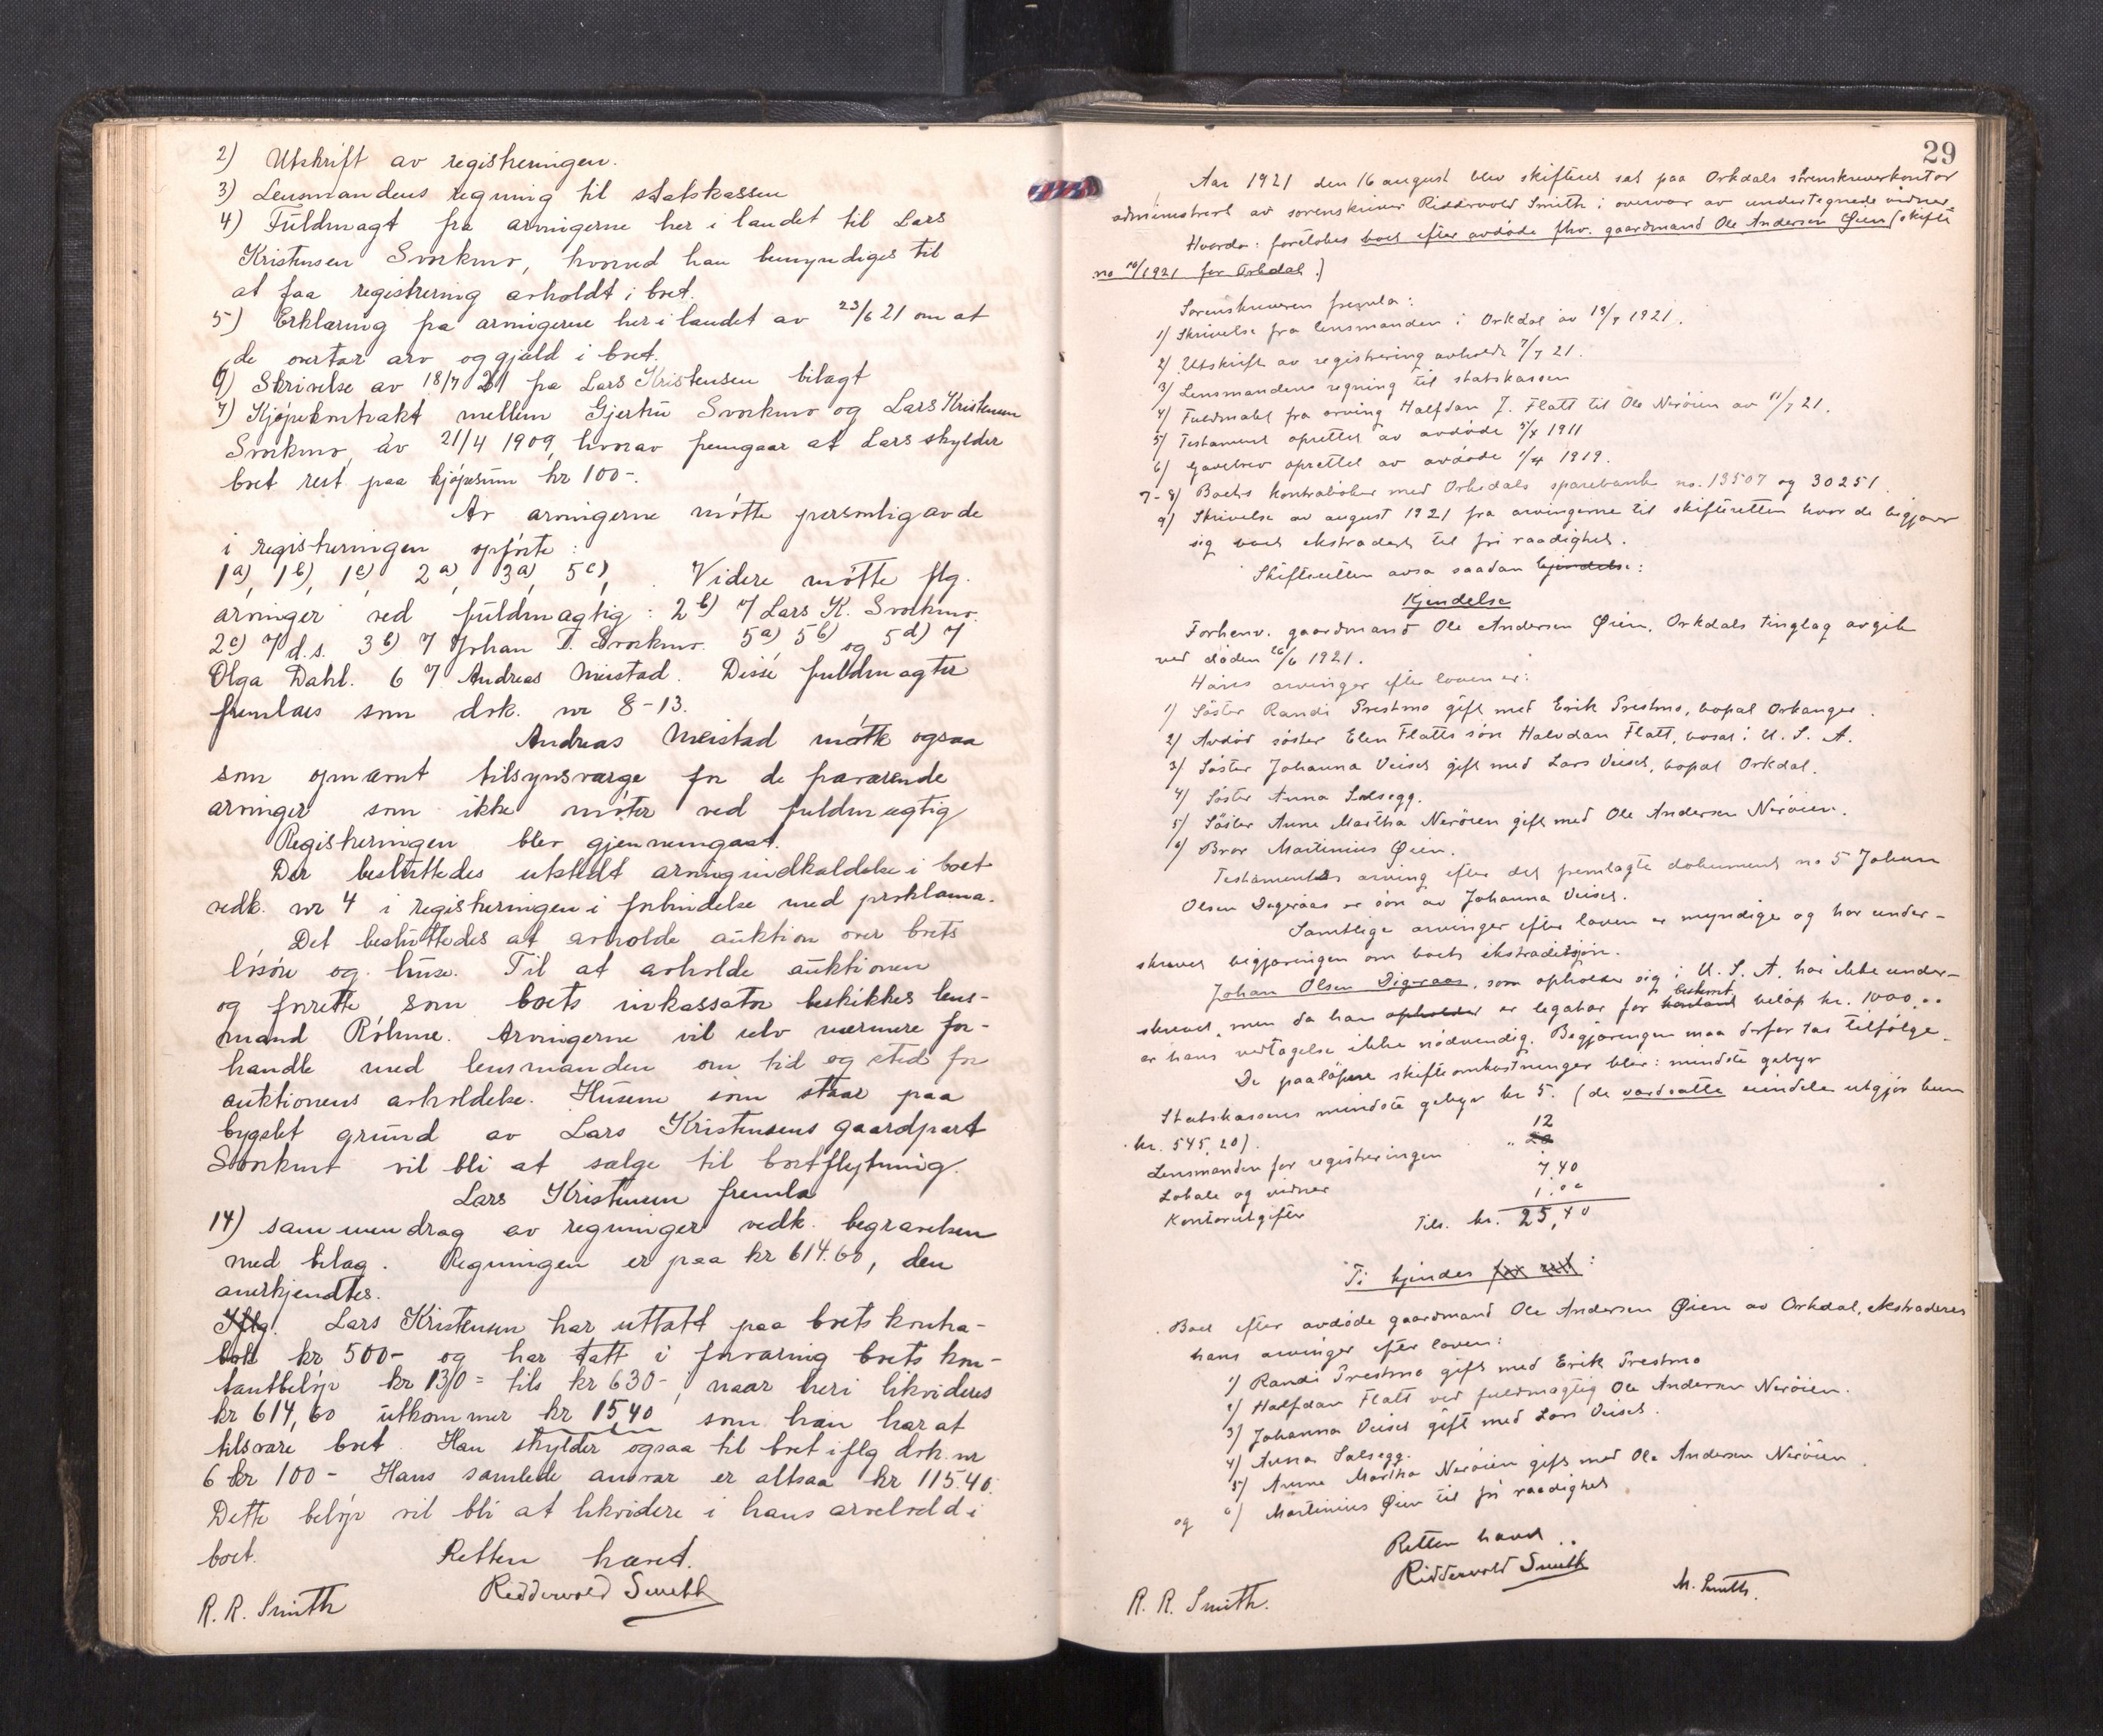 2) Utskrift av registreringen.
3) Lensmandens regning til statskassen
4) Fuldmagt fra arvingerne her i landet til Lars
Kristensen Svorkmo, hvorved han bemyndiges til
at faa registrering avholdt i boet.
5) Erklæring fra arvingerne her i landet av 23/6 21 om at
de overtar arv og gjæld i boet.
6) Skrivelse av 18/7 21 fra Lars Kristensen bilagt
7) Kjøpekontrakt mellem Gjertru Svorkmo og Lars Kristensen
Svorkmo, av 21/4 1909, hvorav fremgaar at Lars skylder
boet rest paa kjøpesum kr 100-.
Av arvingerne møtte personlig av de
i registreringen opførte:
1a), 1b), 1c) 2a), 3a), 5c), . Videre møtte flg.
arvinger ved fuldmægtig: 2b) v/ Lars K. Svorkmo.
2c) v/ d.s. 3b) v/ Johan T. Svorkmo. 5a), 5b) og 5d) v/
Olga Dahl. 6 v/ Andreas Meistad. Disse fuldmagter
fremlaes som dok. nr 8-13.
Andreas Meistad møtte ogsaa
som opnævnt tilsynsværge for de fraværende
arvinger som ikke møter ved fuldmægtig
Registreringen blev gjennemgaat.
Der besluttedes utstedt arvingindkaldelse i boet
vedk. nr 4 i registreringen i forbindelse med proklama.
Det besluttedes at avholde auktion over boets
løsøre og huse. Til at avholde auktionen
og forrette som boets inkassator beskikkes lens-
mand Röhme. Arvingerne vil selv nærmere for-
handle med lensmanden om tid og sted for
auktionens avholdelse. Husene som staar paa
bygslet grund av Lars Kristensens gaardpart
Svorkmo vil bli at sælge til bortflytning.
Lars Kristensen fremla
14) sammendrag av regninger vedk. begravelsen
med bilag. Regningen er paa kr 614.60, den
anerkjendtes.
Iflg. Lars Kristensen har uttatt paa boets kontra-
bok kr 500- og har tatt i forvaring boets kon-
tantbeløp kr 130 = tils kr 630-, naar heri likvideres
kr 614,60 utkommer kr 15,40 som han har at
tilsvare boet. Han skylder ogsaa til boet iflg dok. nr
6 kr 100- Hans samlede ansvar er altsaa kr 115.40.
Dette beløp vil bli at likvidere i hans arvelodd i
boet. Retten hævet.
Ridderwold Smith
R. R. Smith
29
Aar 1921 den 16 august blev skifteret sat paa Orkdals sorenskriverkontor
administrert av sorenskriver Ridderwold Smith i overvær av undertegnede vidner
Hvorda: foretokes boet efter avdøde fhv. gaardmand Ole Andersen Øien (skifte
no 10/1921 for Orkdal.)
Sorenskriveren fremla:
1) Skrivelse fra lensmanden i Orkdal av 19/7 1921.
2) Utskrift av registrering avholdt 7/7 21.
3) Lensmandens regning til statskassen
4) Fuldmakt fra arving Halfdan J. Flatt til Ole Nerøien av 11/7 21.
5) Testament oprettet av avdøde 5/8 1911
6) Gavebrev oprettet av avdøde 1/4 1919.
7-8) Boets kontrabøker med Orkedals sparebank no. 13507 og 30251.
9) Skrivelse av august 1921 fra arvingerne til skifteretten hvor de begjærer
sig boet ekstradert til fri raadighet.
Skifteretten avsa saadan kjendelse:
Kjendelse
Forhenv. gaardmand Ole Andersen Øien, Orkdals tinglag avgik
ved døden 26/6 1921.
Hans arvinger efter loven er:
1) Søster Randi Prestmo gift met Erik Prestmo, bopæl Orkanger.
2) Avdød søster Elen Flatts søn Halvdan Flatt, bosat i U. S. A.
3) Søster Johanna Veiset gift med Lars Veiset, bopæl Orkdal.
4) Søster Anna Solsegg.
5) Søster Anne Martha Nerøien gift med Ole Andersen Nerøien.
6) Bror Martinius Øien.
Testamentets arving efter det fremlagte dokument no 5 Johan
Olsen Digeraas er søn av Johanna Veiset.
Samtlige arvinger efter loven er myndige og har under-
skrevet begjæringen om boets ekstradition.
Johan Olsen Digeraas, som opholder sig i U. S. A. har ikke under-
skrevet, men da han opholder er legatar for bestemt beløp kr. 1000,..
er hans vedtagelse ikke nødvendig. Begjæringen maa derfor tas tilfølge.
De paaløpne skifteomkostninger blir: mindste gebyr
Statskassens mindste gebyr kr 5. (de værdsatte eiendele utgjør kun
kr. 545,20).
Lensmanden for registreringen " 12
Lokale og vidner 7 40
Kontorutgifter 1.00
Tils. kr. 25,40
Ti kjendes for ret:
Boet efter avdøde gaardmand Ole Andersen Øien av Orkdal, ekstraderes
hans arvinger efter loven:
1) Randi Prestmo gift med Erik Prestmo
2) Halfdan Flatt ved fuldmægtig Ole Andersen Nerøien.
3) Johanna Veiset gift med Lars Veiset.
4) Anna Solsegg.
5) Anne Martha Nerøien gift med Ole Andersen Nerøien.
og 6) Martinius Øien til fri raadighet
Retten hævet
Ridderwold Smith
R. R. Smith.
M. Smith.